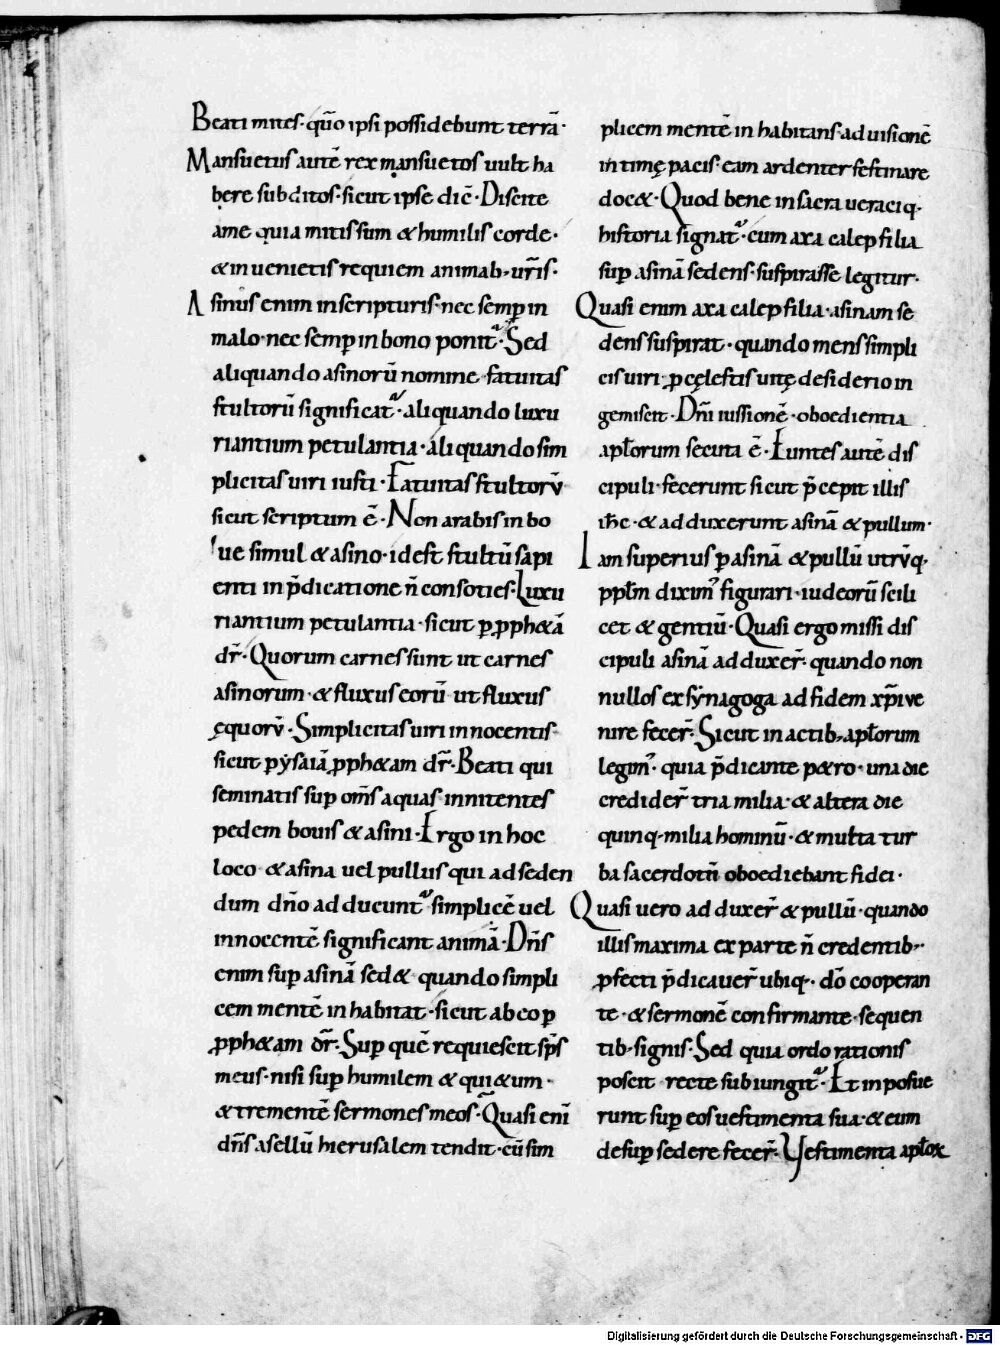 Beati mites· qūo ipsi possidebunt terrā·
Mansuetus autē rex mansuetos uult ha
bere subditos· sicut ipse dic̄· Discite
ame quia mitis sum & humilis corde·
& inuenietis requiem animab; ur̄is·
Asinus enim in scripturis· nec semp̱ in
malo· nec semp̱ in bono ponit᷑· Sed
aliquando asinorū nomine fatuitas
stultorū significat᷑· aliquando luxu
riantium petulantia· aliquando sim
plicitas uiri iusti· Fatuitas stultorū
sicut scriptum ē· Non arabis in bo
ue simul & asino· id est stultū sapi
enti in p̄dicatione n̄ consocies· Luxu
riantium petulantia· sicut p̱ ꝓph&ā
dr̄· Quorum carnes sunt ut carnes
asinorum· & fluxus eorū ut fluxus
ęquorū· Simplicitas uiri innocentis·
sicut p̱ ysaiā ꝓph&am dr̄· Beati qui
seminatis sup̱ om̄s aquas inmitentes
pedem bouis & asini· Ergo in hoc
loco & asina uel pullus qui ad seden
dum dn̄o adducunt᷑ simplicē uel
innocentē significant animā· Dn̄s
enim sup̱ asinā sed& quando simpli
cem mentē inhabitat· sicut ab eo p̱
ꝓph&am dr̄· Sup̱ quē requiescit sp̄s
meus· nisi sup̱ humilem & qui&um·
& trementē sermones meos· Quasi eni̅
dn̄s asellū hierusalem tendit· cū sim
plicem mentē inhabitans· ad uisionē
intimę pacis· eam ardenter festinare
doc&· Quod bene in sacra ueraciq;
historia signat᷑· cum axa caleph filia
sup̱ asinā sedens· suspirasse legitur·
Quasi enim axa caleph filia· asinam se
dens suspirat· quando mens simpli
cis uiri· p̱ cęlestis uitę desiderio in
gemiscit· Dn̄i iussionē· oboedientia
apl̄orum secuta ē· Euntes autē dis
cipuli· fecerunt sicut p̄cepit illis
ih̄c· & adduxerunt asinā & pullum·
Iam superius p̱ asinā & pullū utrūq;
pp̄lm dixim᷒ figurari· iudeorū scili
cet & gentiū· Quasi ergo missi dis
cipuli asinā adduxer̄· quando non
nullos ex synagoga ad fidem xp̄i ue
nire fecer̄· Sicut in actib; apl̄orum
legim᷒· quia p̄dicante p&ro· una die
credider̄ tria milia· & altera die
quinq; milia hominū· & multa tur
ba sacerdotū oboediebant fidei·
Quasi uero adduxer̄ & pullū· quando
illis maxima ex parte n̄ credentib;·
ꝓfecti p̄dicauer̄ ubiq;· dō cooperan
te· & sermonē confirmante· sequen
tib; signis· Sed quia ordo rationis
poscit recte subiungit᷑· Et inposue
runt sup̱ eos uestimenta sua· & eum
desup̱ sedere fecer̄· Vestimenta apl̄oꝝ
Digitalisierung gefördert durch die Deutsche Forschungsgemeinschaft - DFG